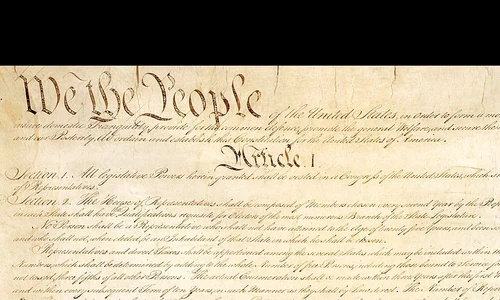 We the People of the United States, in order to form a mo
insure domestic Tranquility, provide for the common defence, promote the general Welfare, and secure the
and our Posterity, do ordain and establish this Constitution for the United States of America.
Article. I.
Section. 1. All legislative Powers herein granted shall be vested in a Congress of the United States, which s
of Representatives.
Section. 2. The House of Representatives shall be composed of Members chosen every second Year by the P
in each State shall have Qualifications requisite for Electors of the most numerous Branch of the State Legislature.
No Person shall be a Representative who shall not have attained to the Age of twenty five Years, and been
and who shall not, when elected, be an Inhabitant of that State in which he shall be chosen.
Representatives and direct Taxes shall be apportioned among the several States which may be included within th
Numbers, which shall be determined by adding to the whole Number of free Persons, including those bound to Service
not taxed, three fifths of all other Persons. The actual Enumeration shall be made within three Years after the first
and within every subsequent Term of ten Years, in such Manner as they shall by Law direct. The Number of Repre